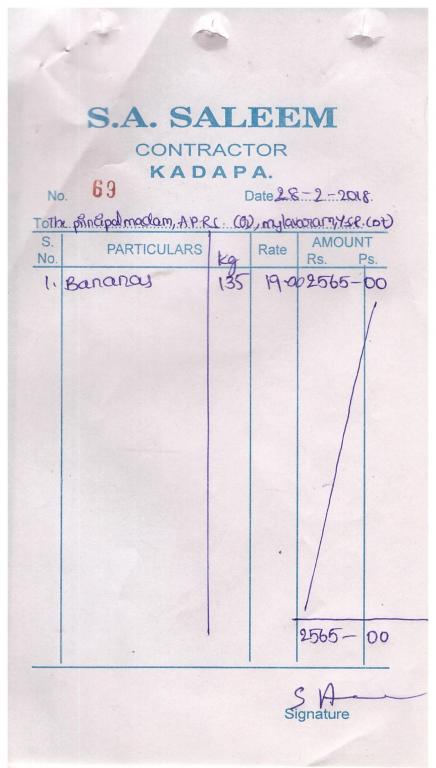 S.A. SALEEM
CONTRACTOR
KADAPA.
No. 69 Date 28-2-2018.
To The principal madam, A.P.R.S. (G), mylavaram, Y.S.R. (Dt)
S. No. PARTICULARS kg Rate AMOUNT Rs. Ps.
1. Bananas 135 19-00 2565-00
2565-00
Signature